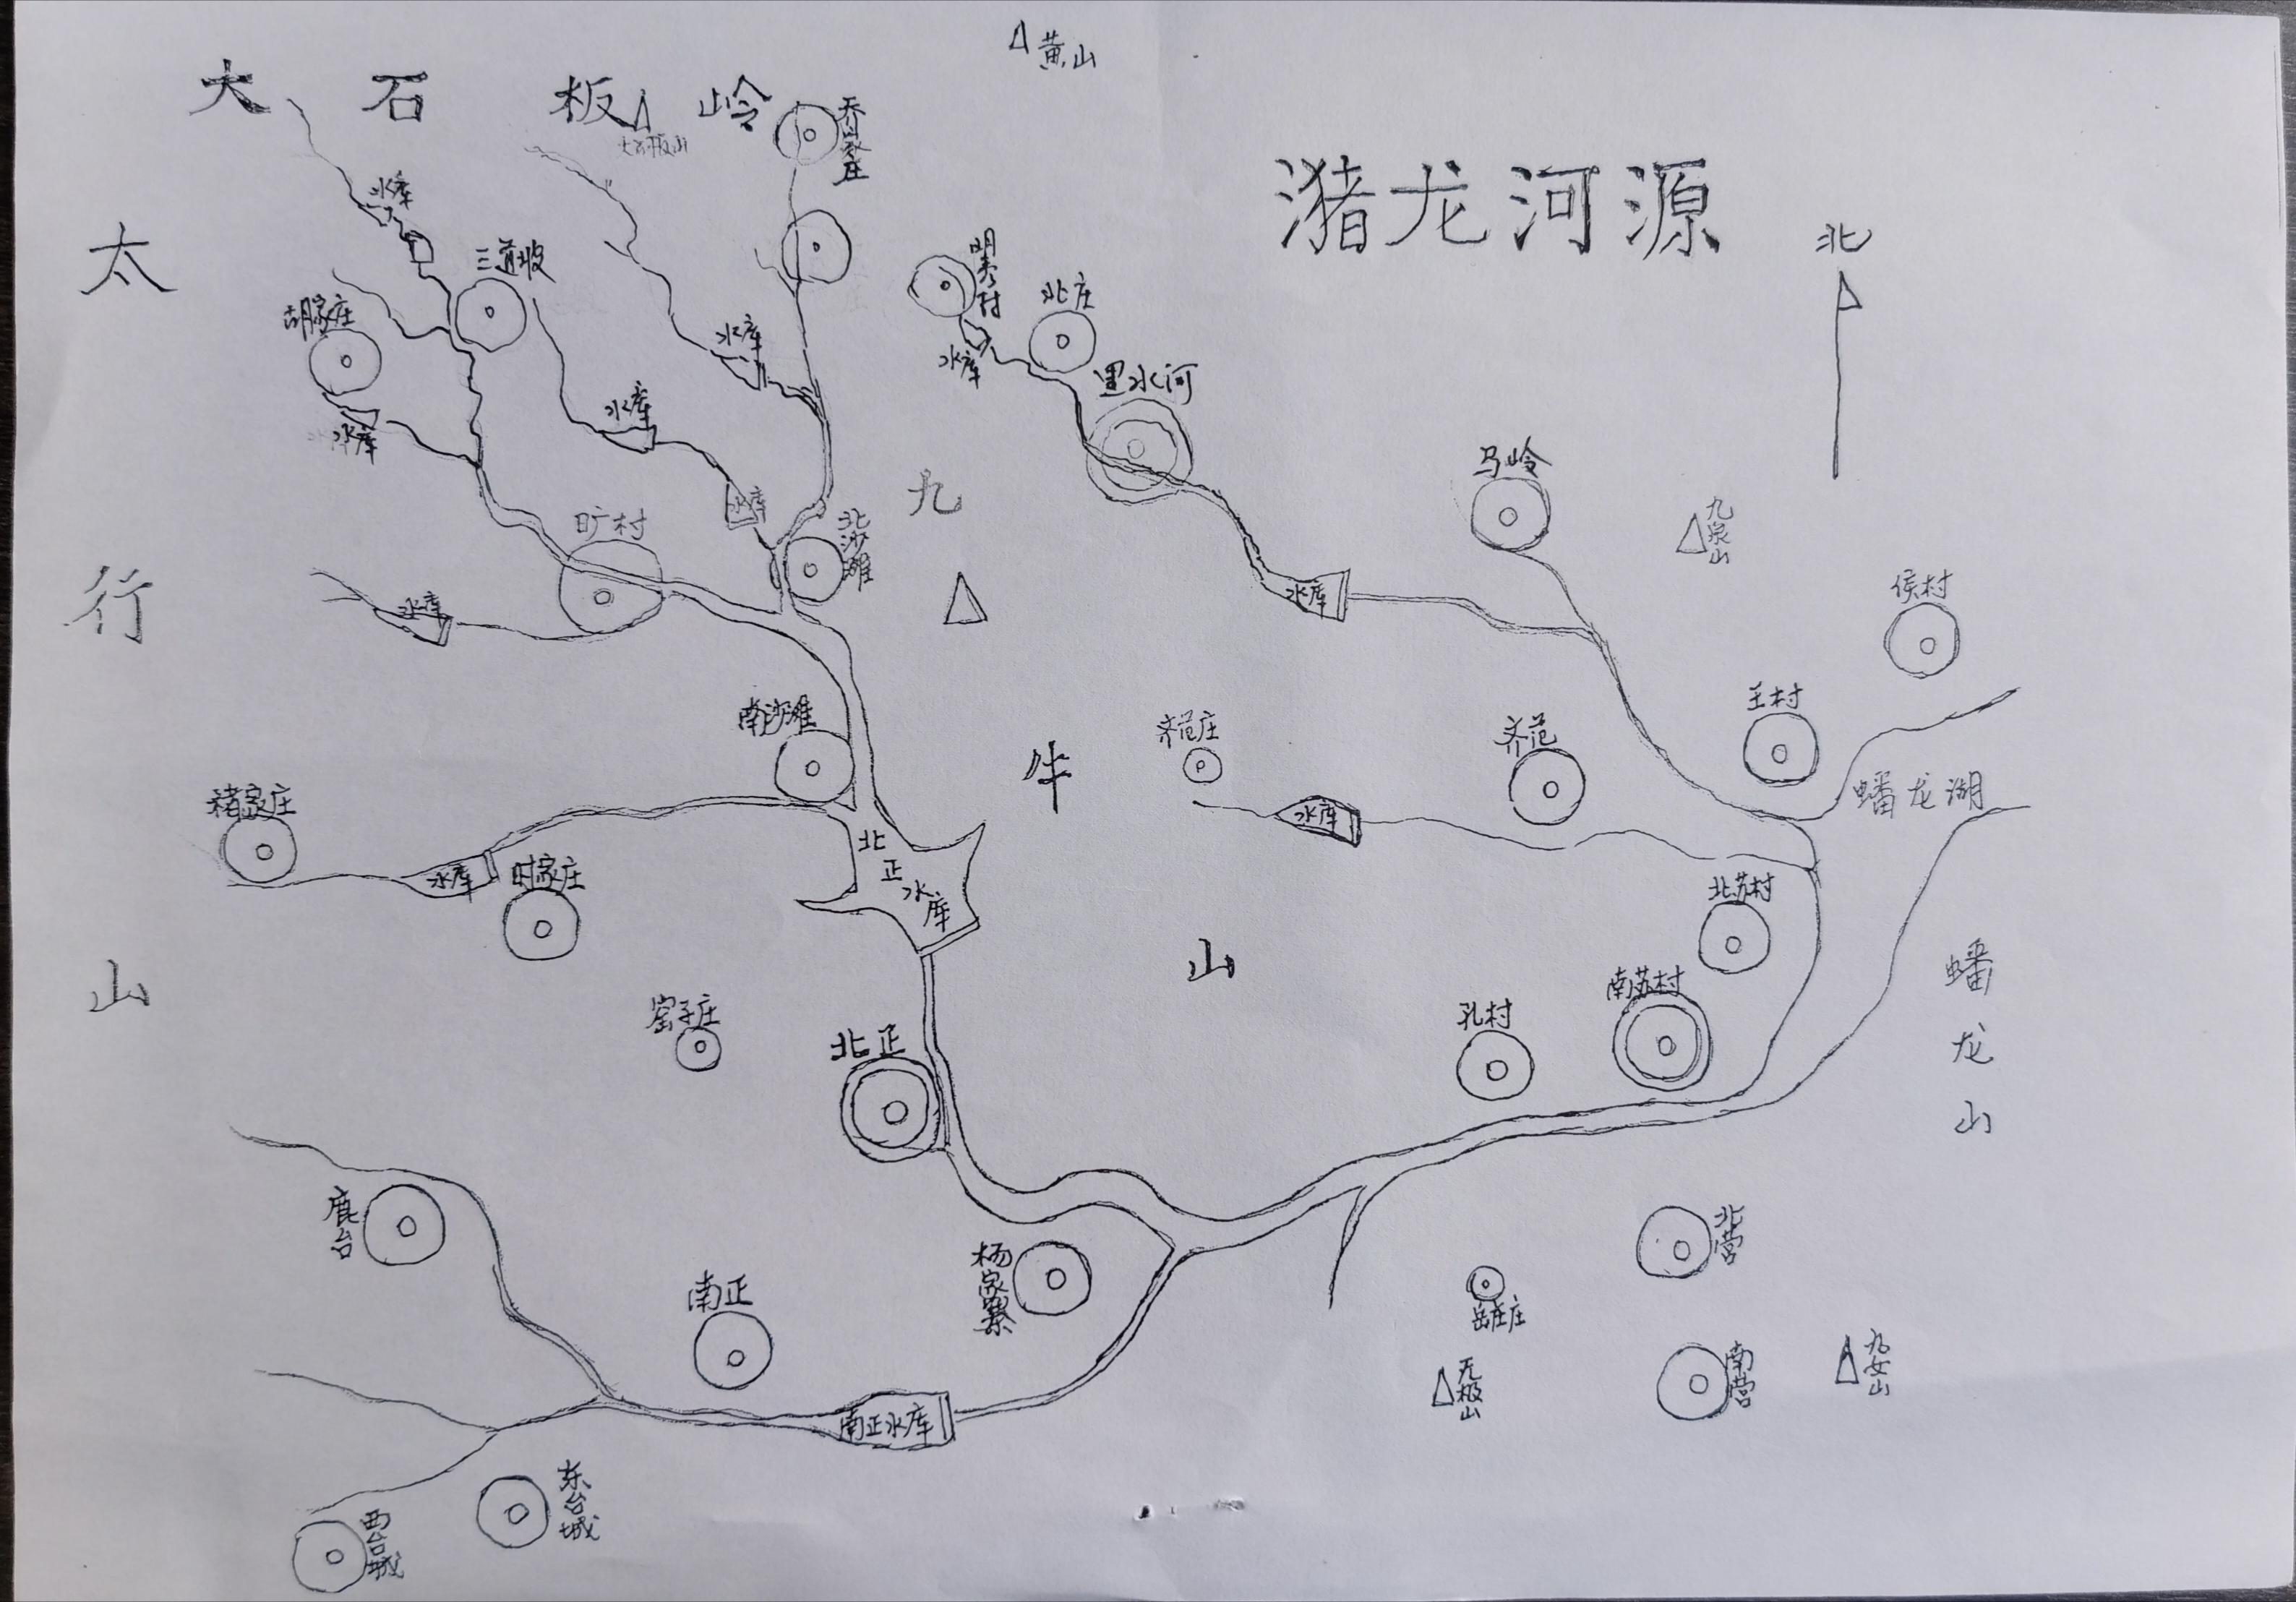 黄山
大石板岭
大石板山
乔家庄
潴龙河源
北
水库
太行山
三道坡
明秀村
北庄
胡家庄
水库
水库
水库
里水河
水库
水库
马岭
水库
旷村
北沙滩
九牛山
九泉山
水库
水库
侯村
南沙滩
齐范庄
齐范
王村
蟠龙湖
褚家庄
水库
水库
时家庄
北正水库
北苏村
蟠龙山
窑子庄
北正
孔村
南苏村
鹿台
南正
杨家寨
北营
岳庄
无极山
南营
九女山
南正水库
东台城
西台城